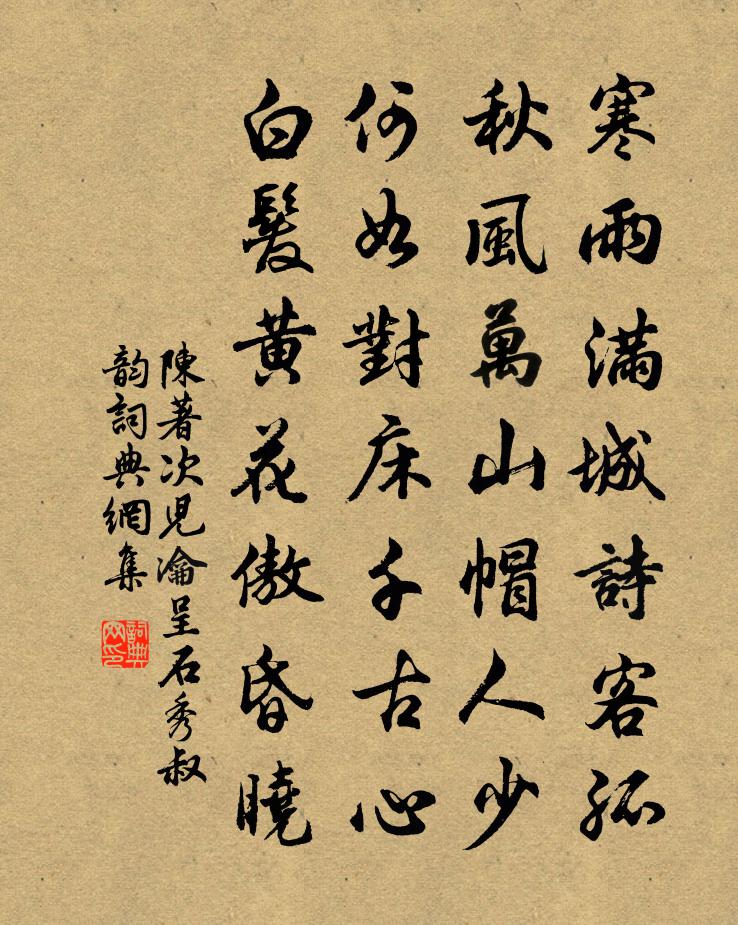 寒雨滿城詩客孤
秋風萬山帽人少
何如對床千古心
白髮黃花傲昏曉
陳著次兒瀹呈石秀叔
韵詞典網集
詞典
网印